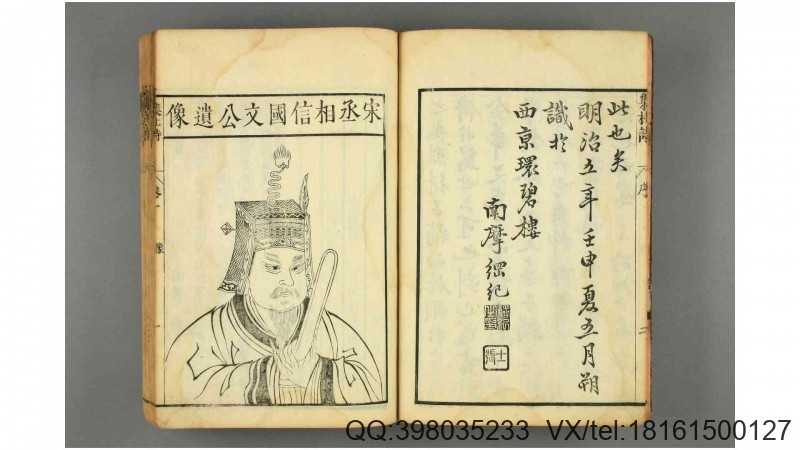 集杜詩
序
二
此也矣
明治五年壬申夏五月朔
識於
西亰環碧樓
南摩綱紀
宋丞相信國文公遺像
像
一
QQ:398035233 VX/tel:18161500127